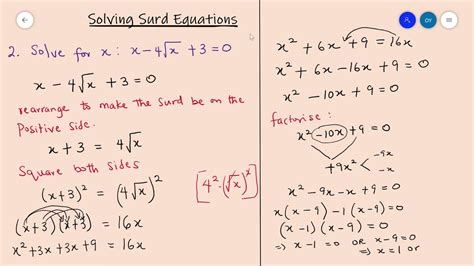 Solving Surd Equations
2. Solve for x : x - 4√x + 3 = 0
x - 4√x + 3 = 0
rearrange to make the Surd be on the
Positive side.
x + 3 = 4√x
Square both sides
(x+3)² = (4√x)² [4² · (√x)²]
(x+3)(x+3) = 16x
x² + 3x + 3x + 9 = 16x
x² + 6x + 9 = 16x
x² + 6x - 16x + 9 = 0
x² - 10x + 9 = 0
factorise :
x² - 10x + 9 = 0
+9x² < -9x
-x
x² - 9x - x + 9 = 0
x(x-9) -1(x-9) = 0
(x-1)(x-9) = 0
⇒ x - 1 = 0 OR x - 9 = 0
⇒ x = 1 or
OY